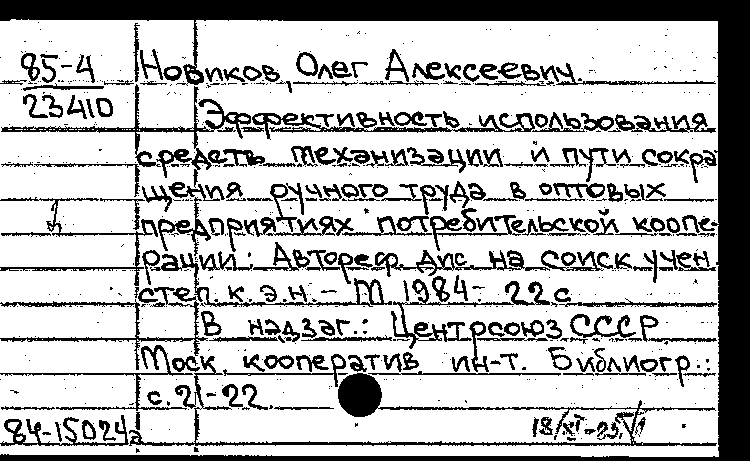 85-4
23410
Новиков, Олег Алексеевич.
Эффективность использования
средств механизации и пути сокра
щения ручного труда в оптовых
предприятиях потребительской коопе-
рации: Автореф. дис. на соиск учен.
степ. к. э. н. - М 1984 - 22 с
В надзаг.: Центросоюз СССР
Моск. кооператив. ин-т. Библиогр.:
с. 21-22.
84-15024а